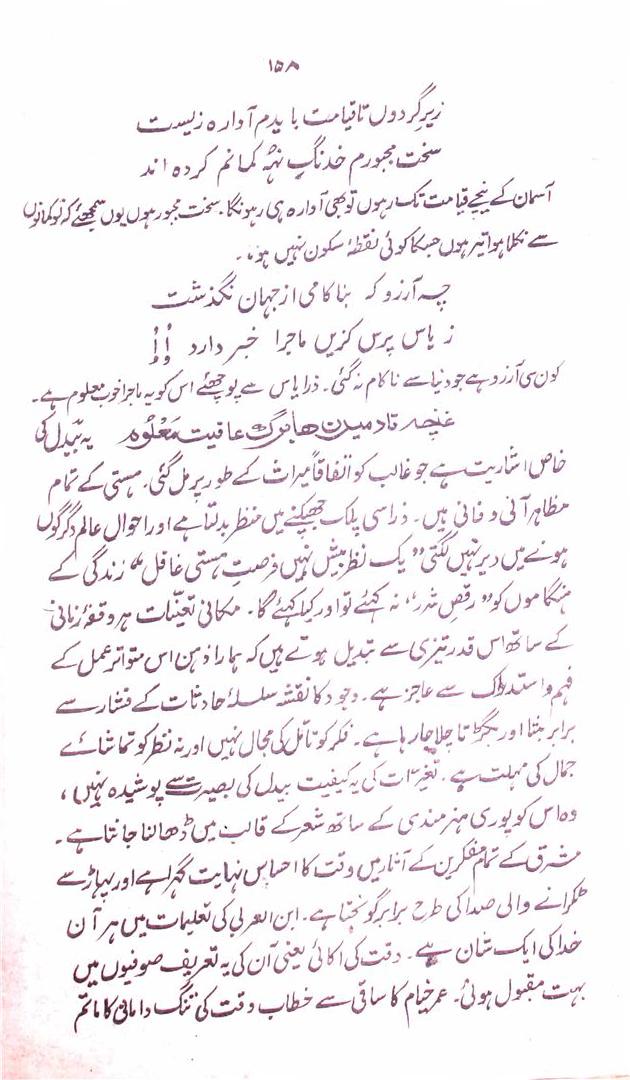 ۱۵۸
زیر گردوں تا قیامت بایدم آوارہ زیست
سخت مجبورم خدنگِ نہُہ کمانم کردہ اند
آسمان کے نیچے قیامت تک رہوں تو بھی آوارہ ہی رہونگا۔ سخت مجبور ہوں یوں سمجھئے کہ نو کمانوں
سے نکلا ہوا تیر ہوں جسکا کوئی نقطۂ سکون نہیں ہو۔
چہ آرزو کہ بنا کامی از جہان نگذشت
ز یاس پرس کزیں ماجرا خبر دارد
کون سی آرزو ہے جو دنیا سے ناکام نہ گئی۔ ذرا یاس سے پوچھئے اس کو یہ ماجرا خوب معلوم ہے۔
غنچہ تا دمیدن ها برگ عافیت معلوم یہ بیدل کی
خاص اشاریت ہے جو غالب کو اتفاقاً میراث کے طور پر مل گئی۔ ہستی کے تمام
مظاہر آنی و فانی ہیں۔ ذرا سی پلک جھپکنے میں منظر بدلتا ہے اور احوال عالم دگرگوں
ہونے میں دیر نہیں لگتی "یک نظر بیش نہیں فرصتِ ہستی غافل" زندگی کے
ہنگاموں کو "رقصِ شرر" نہ کہئے تو اور کیا کہئے گا۔ مکانی تعینات ہر وقفۂ زمانی
کے ساتھ اس قدر تیزی سے تبدیل ہوتے ہیں کہ ہمارا ذہن اس متواتر عمل کے
فہم و استدراک سے عاجز ہے۔ وجود کا نقشہ سلسلۂ حادثات کے فشار سے
برابر بنتا اور بگڑتا چلا جا رہا ہے۔ فکر کو تأمل کی مجال نہیں اور نہ نظر کو تماشائے
جمال کی مہلت ہے۔ تغیرات کی یہ کیفیت بیدل کی بصیرت سے پوشیدہ نہیں،
وہ اس کو پوری ہنر مندی کے ساتھ شعر کے قالب میں ڈھالنا جانتا ہے۔
مشرق کے تمام مفکرین کے آثار میں وقت کا احساس نہایت گہرا ہے اور پہاڑ سے
ٹکرانے والی صدا کی طرح برابر گونجتا ہے۔ ابن العربی کی تعلیمات میں ہر آن
خدا کی ایک شان ہے۔ وقت کی اکائی یعنی آن کی یہ تعریف صوفیوں میں
بہت مقبول ہوئی۔ عمر خیام کا ساقی سے خطاب وقت کی تنگ دامانی کا ماتم